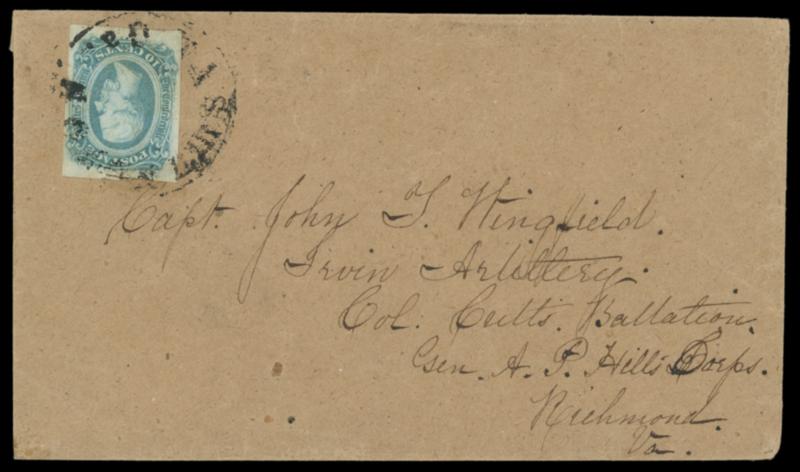 POSTAGE
10 CENTS
Capt. John T. Wingfield.
Irvin Artillery.
Col. Cutts. Battation.
Gen. A. P. Hills Corps.
Richmond.
Va.